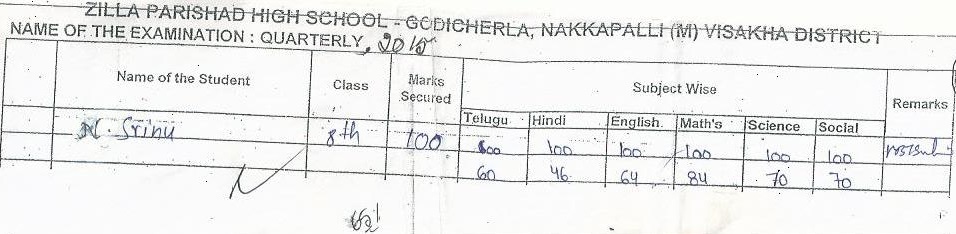 ZILLA PARISHAD HIGH SCHOOL - GODICHERLA, NAKKAPALLI (M) VISAKHA DISTRICT
NAME OF THE EXAMINATION : QUARTERLY,
Name of the Student Class Marks Secured Subject Wise Remarks
Telugu Hindi English Math's Science Social
N. Srinu 8th 100 100 100 100 100 100 100
60 46 64 84 70 70